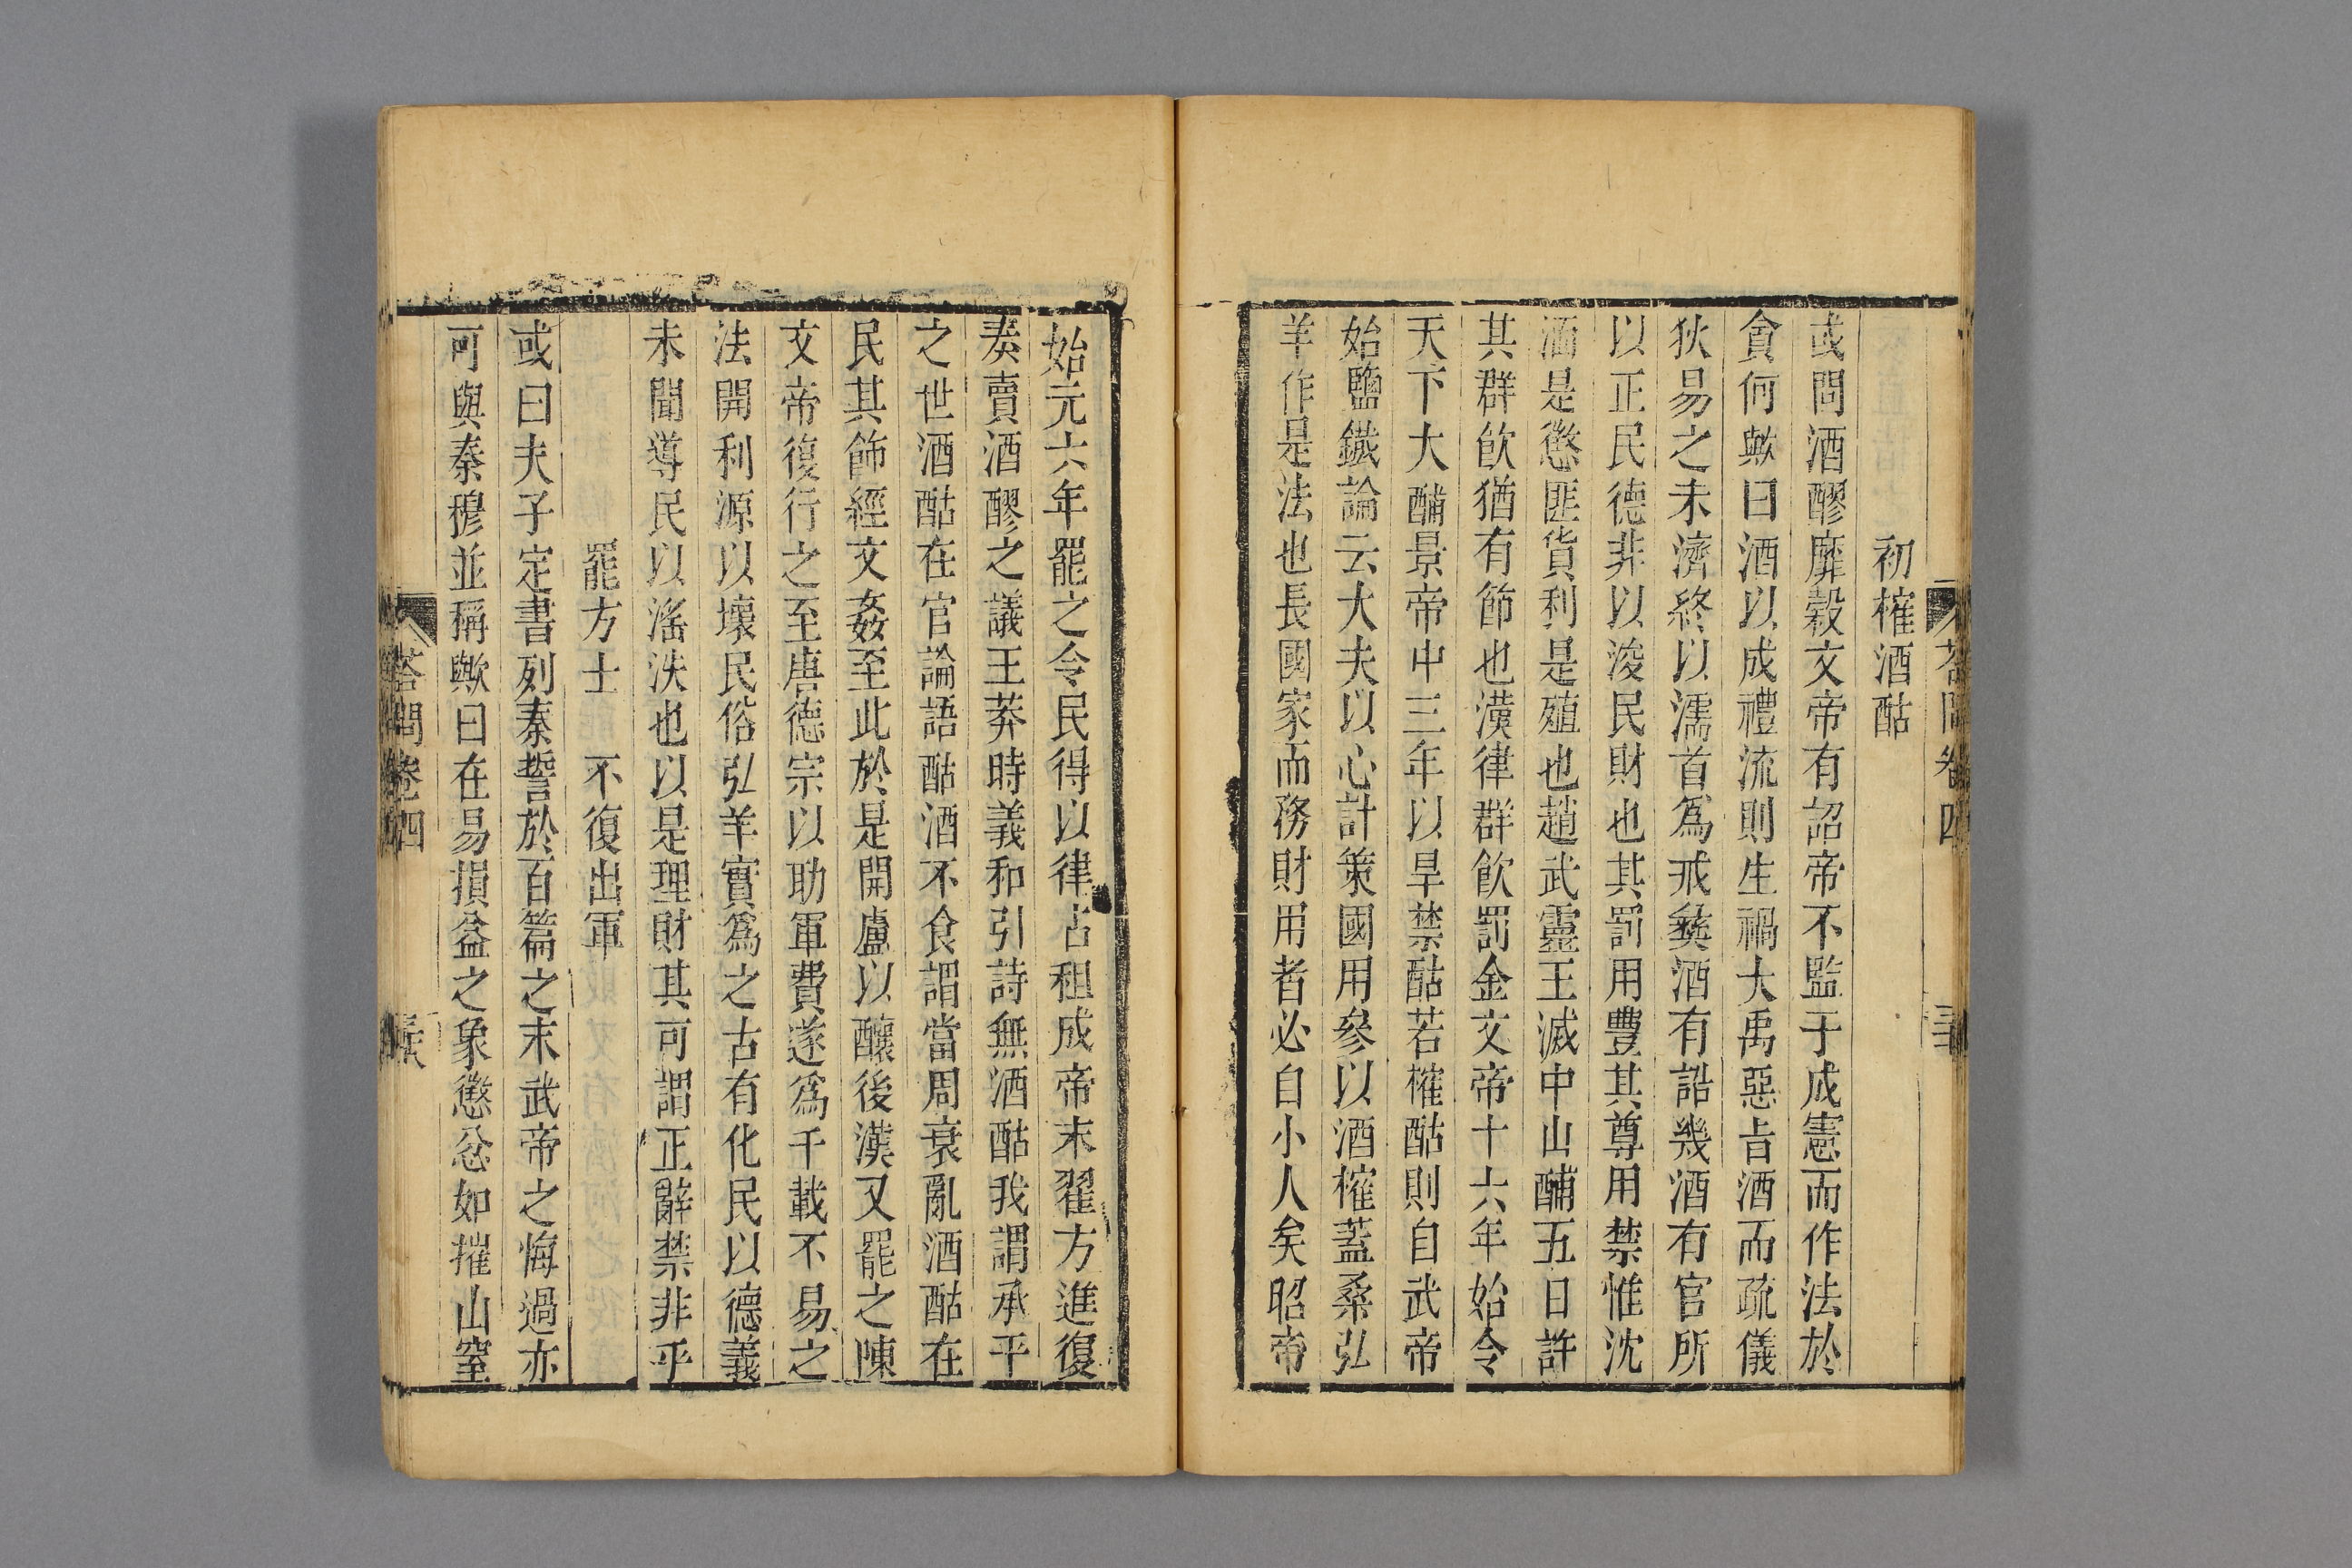 答問卷四
初榷酒酤
或問酒醪靡穀文帝有詔帝不監于成憲而作法於
貪何歟曰酒以成禮流則生禍大禹惡旨酒而疏儀
狄易之未濟終以濡首爲戒彝酒有誥幾酒有官所
以正民德非以浚民財也其罰用豐其尊用禁惟沈
湎是懲匪貨利是殖也趙武靈王滅中山酺五日許
其群飲猶有節也漢律群飲罰金文帝十六年始令
天下大酺景帝中三年以旱禁酤若榷酤則自武帝
始鹽鐵論云大夫以心計策國用參以酒榷蓋桑弘
羊作是法也長國家而務財用者必自小人矣昭帝
始元六年罷之令民得以律占租成帝末翟方進復
奏賣酒醪之議王莽時義和引詩無酒酤我謂承平
之世酒酤在官論語酤酒不食謂當周衰亂酒酤在
民其飾經文姦至此於是開盧以釀後漢又罷之陳
文帝復行之至唐德宗以助軍費遂爲千載不易之
法開利源以壞民俗弘羊實爲之古有化民以德義
未聞導民以滛泆也以是理財其可謂正辭禁非乎
罷方士 不復出軍
或曰夫子定書列秦誓於百篇之末武帝之悔過亦
可與秦穆並稱歟曰在易損益之象懲忿如摧山窒
答問卷四